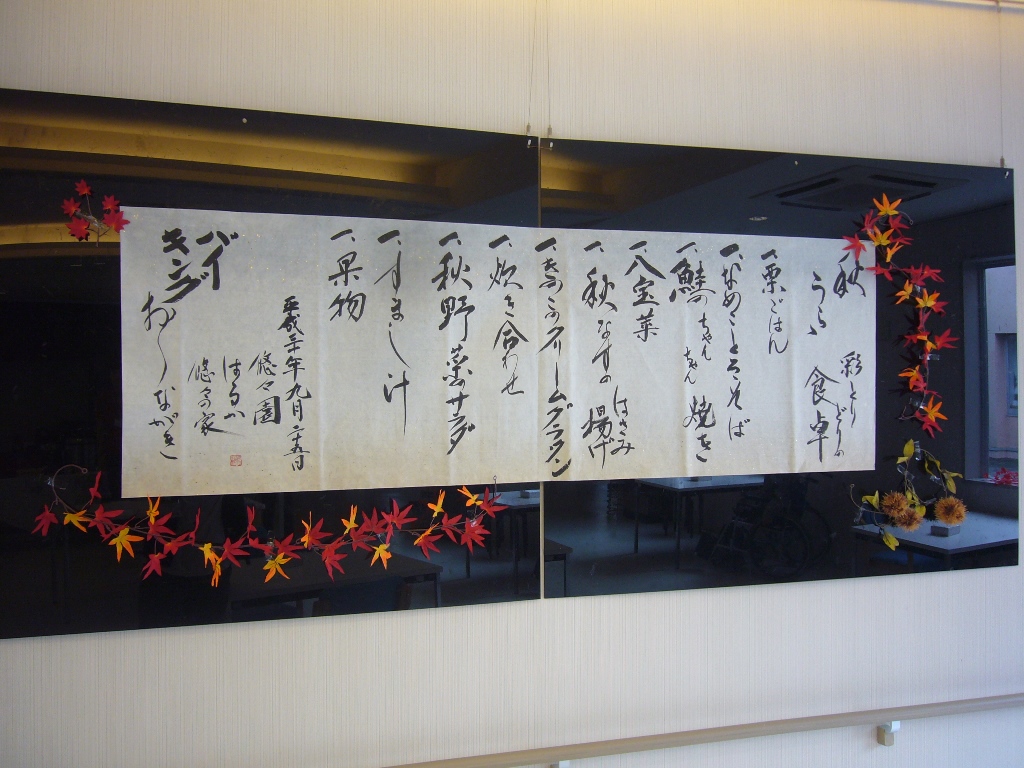 秋
うらゝ
彩とりどりの
食卓
一、栗ごはん
一、なめことろろそば
一、鮭のちゃんちゃん焼き
一、八宝菜
一、秋なすのはさみ揚げ
一、きのこのクリームグラタン
一、炊き合わせ
一、秋野菜のサラダ
一、すまし汁
一、果物
平成二十年九月二十五日
悠々園
はるか
悠々の家
バイキング
おしながき